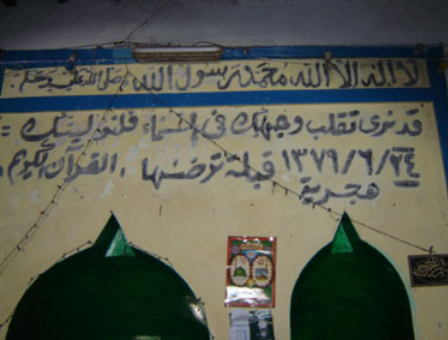 لا اله الا الله محمد رسول الله صلى الله عليه وسلم
قد نرى تقلب وجهك في السماء فلنولينك =
قبلة ترضها ، القرآن الكريم ١٣٧٩/٦/٢٤
هجرية